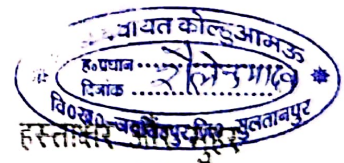 पंचायत कोल्हुआमऊ
ह०प्रधान..........
दिनांक ..........
वि०ख०- जि० सुलतानपुर
हस्ताक्षर और मुहर